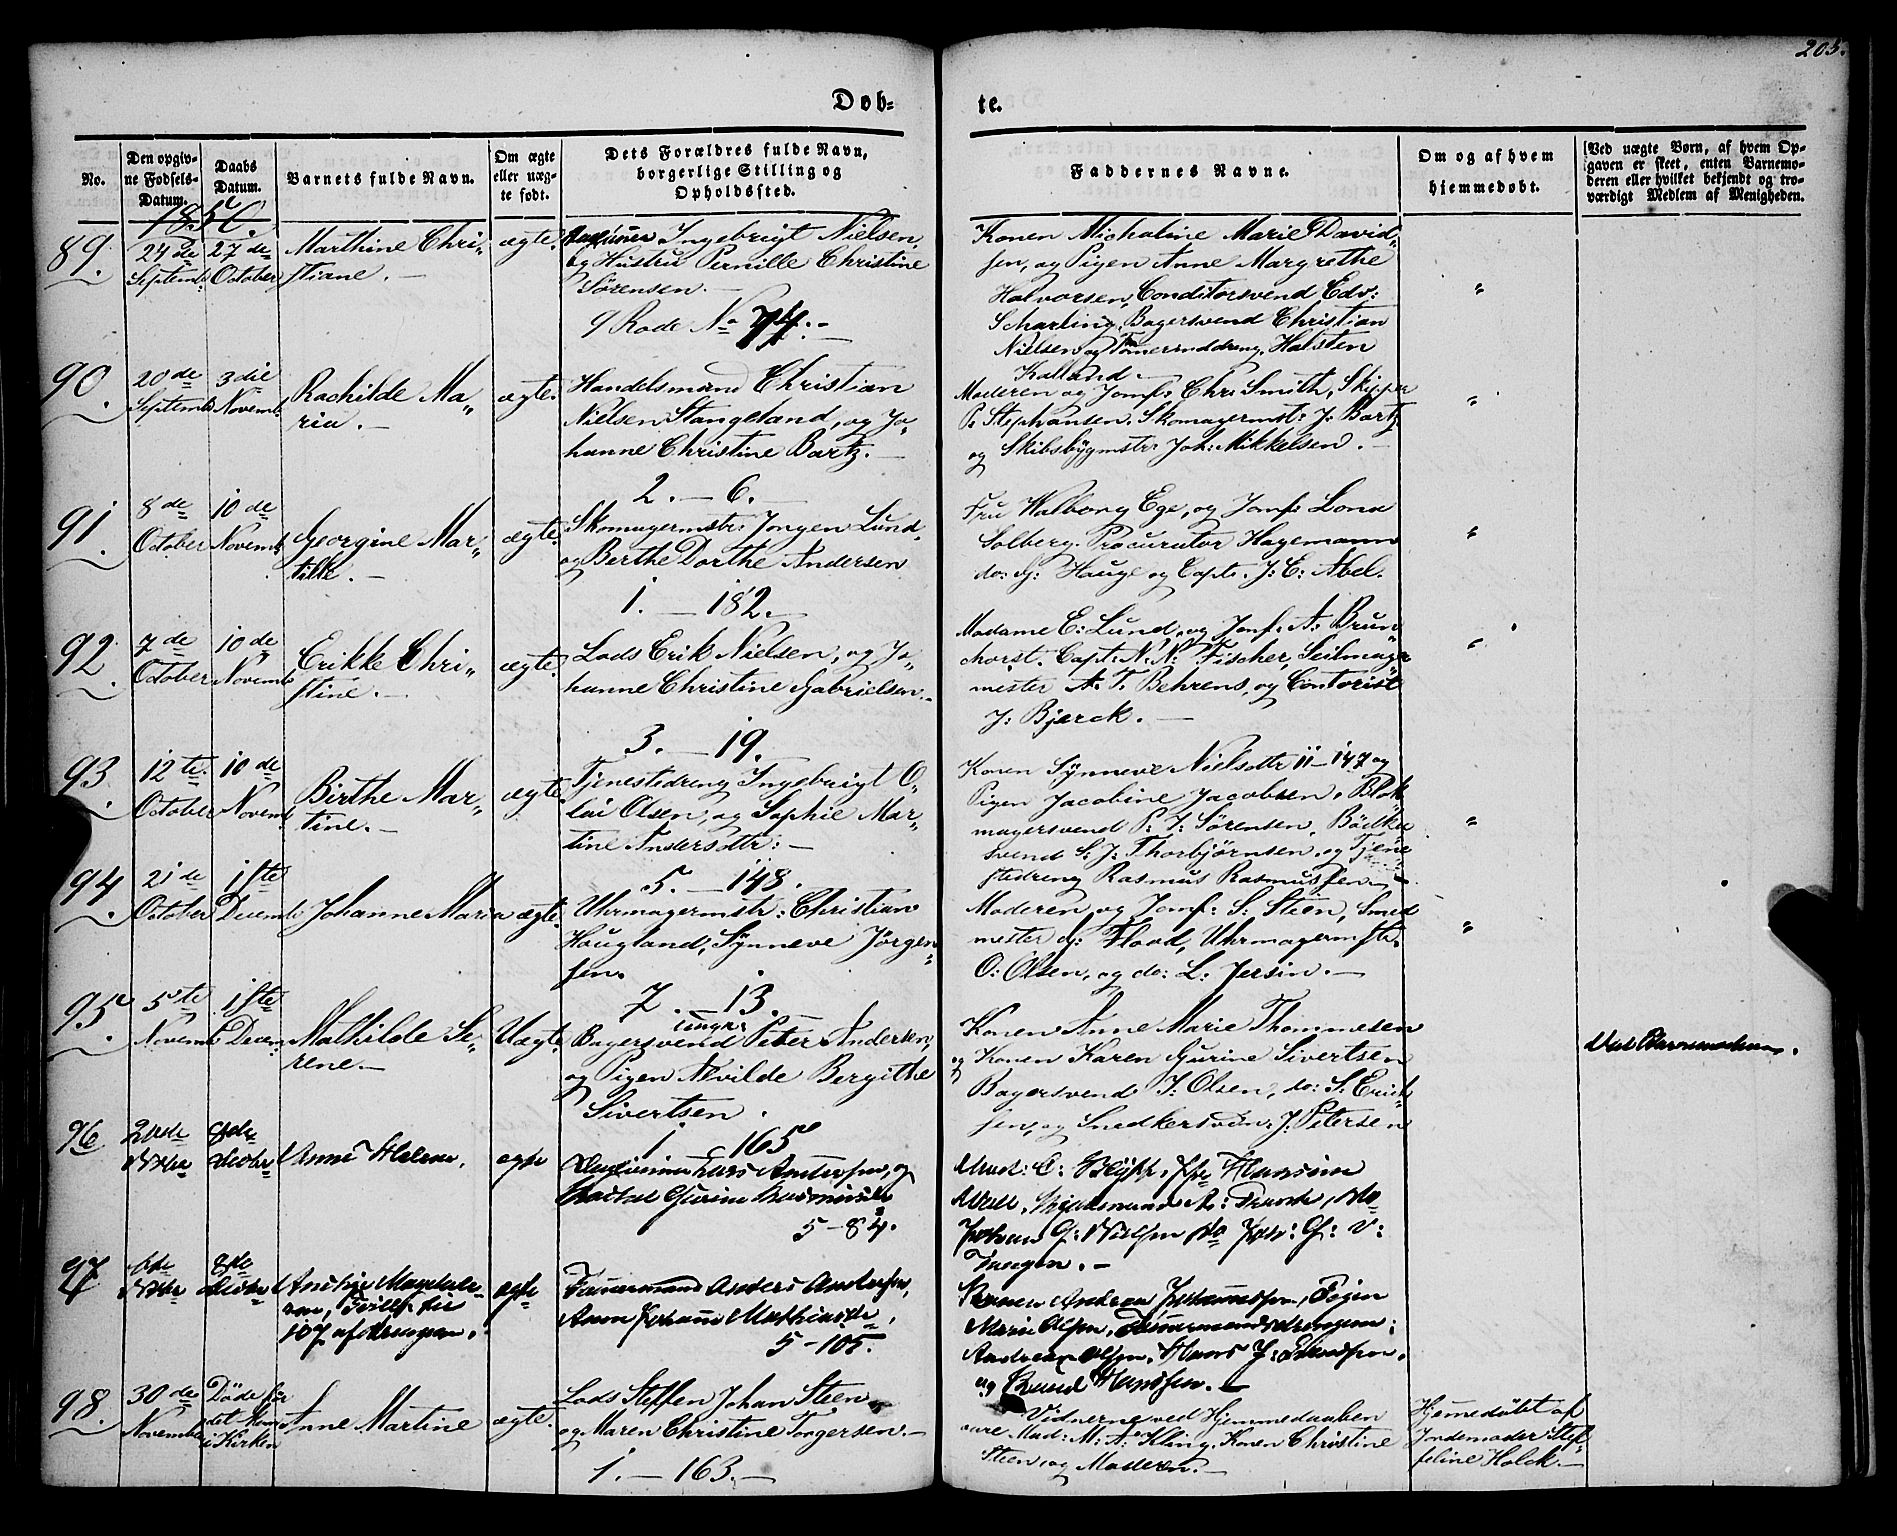 205.
Döb-
te.
No.
Den opgiv-
ne Fødsels-
Datum.
Daabs
Datum.
Barnets fulde Navn.
Om ægte
eller uæg-
te født.
Dets Forældres fulde Navn,
borgerlige Stilling og
Opholdssted.
Faddernes Navne.
Om og af hvem
hjemmedøbt.
Ved uægte Børn, af hvem Op-
gaven er skeet, enten Barnemo-
deren eller hvilket bekjendt og tro-
værdigt Medlem af Menigheden.
1850.
89.
24de
Septemb:
27de
October
Marthine Chri-
stiane.
ægte.
Ingebrigt Nielsen,
og Hustru Pernille Christine
Sörensen.
9 Rode No 74.
Konen Michaline Marie David-
sen, og Pigen Anne Margrethe
Halvorsen, Conditorsvend Edv:
Scharling, Bagersvend Christian
Nielsen og Halsten
Kalland.
"
90.
20de
Septemb
3die
Novemb.
Rachilde Ma-
ria.
ægte.
Handelsmand Christian
Nielsen Stangeland, og Jo-
hanne Christine Bartz.
2. - 6.
Moderen og Jomf: Chr: Smith, Skipper
P. Stephansen, Skomagermst: J: Bartz
og Skibsbygmstr: Joh: Mikkelsen.
"
91.
8de
October
10de
Novemb
Georgine Mar-
tilke.
ægte.
Skomagermstr: Jörgen Lund
og Berthe Dorthe Andersen
1. - 182.
Fru Walborg Ege, og Jomf: Lona
Solberg, Procurator Hagemann
do: G: Hauge og Capt. J: C: Abel.
"
92.
7de
October
10de
Novemb
Erikke Chri-
stine.
ægte.
Lods Erik Nielsen, og Jo-
hanne Christine Gabrielsen.
3. - 19.
Madame E: Lund, og Jomf: A: Brun-
chorst. Capt: N: N: Fischer, Seilmager
mester A: T. Behrens, og Contorist
J: Bjerck.
"
93.
12te
October
10de
Novemb.
Birthe Mar-
tine.
ægte
Tjenestedreng Ingebrigt O-
lai Olsen, og Sophie Mar-
tine Andersdtr:
5. - 148.
Konen Synneve Nielsdtr 11-147 og
Pigen Jacobine Jacobsen, Blok-
magersvend P: T: Sörensen, Bödker
svend S: J: Thorbjörnsen, og Tjene
stedreng Rasmus Rasmussen.
"
94.
21de
October
1ste
Decemb
Johanne Maria
ægte.
Uhrmagermstr: Christian
Haugland, Synneve Jörgen-
sen.
7. - 13.
Moderen, og Jomf: S: Steen, Smed
mester G: Flood, Uhrmagermste.
O: Olsen, og do: L. Jersin.
"
95.
5te
Novemb
1ste
Decem:
Mathilde Se-
rene.
Uægte
ungk:
Bagersvend Peter Andersen,
og Pigen Alvilde Bergithe
Sivertsen.
1 - 165
Konen Anne Marie Thommesen
og Konen Karen Gurine Sivertsen
Bagersvend T: Olsen, do: S: Erick-
sen, og Snedkersvend J: Petersen
Ved Barnemoderen.
96.
8de
Anne Helene.
ægte
Lars Andersen, og
Gurine
5 - 84.
Mad: C:
Tangen.
97
6de
8de
107 af
ægte
Anders Andersen,
Johanne
5 - 105.
Konen Andrea Johannesen, Pigen
Marie Olsen,
Andreas Olsen, Hans J:
og Hansen.
98.
30de
November
Döde för
det kom
i Kirken
Anne Martine
ægte.
Lods Steffen Johan Steen
og Maren Christine Torgersen.
1. - 163.
Vidnerne ved Hjemmedaaben
vare Mad: M: A: Kling, Konen Christine
Steen, og Moderen.
Hjemmedöbt af
Jordemoder Stef-
feline Holck.